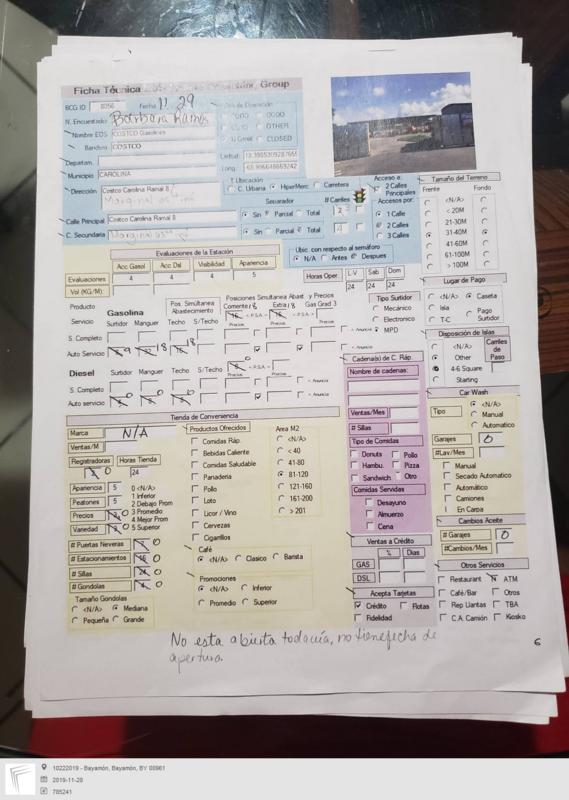 Ficha Técnica
Group
BCG ID 8056 Fecha 11 29
N. Encuestado Barbara Ramos
OTHER
CLOSED
Nombre EDS COSTCO Gasolinera
Bandera COSTCO
Departam.
Municipio CAROLINA
Dirección Costco Carolina Ramal 8
Marginal
Calle Principal Costco Carolina Ramal 8
C. Secundaria Marginal
T Ubicación
C. Urbana HiperMerc Carretera
Separador # Carriles
Sin Parcial Total
Sin Parcial Total
Acceso a
2 Calles Principales
Accesos por:
1 Calle
2 Calles
3 Calles
Tamaño del Terreno
Frente Fondo
<N/A>
< 20M
21-30M
31-40M
41-60M
61-100M
> 100M
Evaluaciones de la Estación
Acc Gasol Acc Dsl Visibilidad Apariencia
Evaluaciones 4 4 4 5
Vol (KG/M):
Ubic. con respecto al semáforo
N/A Antes Despues
Horas Oper. L-V Sab Dom
24 24 24
Lugar de Pago
<N/A> Caseta
Isla Pago Surtidor
T-C
Producto Gasolina Pos. Simultánea Abastecimiento Posiciones Simultanea Abast. y Precios
Servicio Surtidor Manguer Techo S/Techo
S. Completo
Auto Servicio
Tipo Surtidor
Mecánico
Electronico
MPD
Disposición de Islas
<N/A>
Other
4-6 Square
Starting
Carriles de Paso
Diesel Surtidor Manguer Techo S/Techo
S. Completo
Auto servicio
Cadena(s) de C. Ráp.
Nombre de cadenas:
Ventas/Mes
# Sillas
Tipo de Comidas
Donuts Pollo
Hambu. Pizza
Sandwich Otro
Comidas Servidas
Desayuno
Almuerzo
Cena
Ventas a Crédito
% Dias
GAS
DSL
Acepta Tarjetas
Crédito Flotas
Fidelidad
Car Wash
Tipo <N/A>
Manual
Automatico
Garajes 0
#Lav/Mes
Manual
Secado Automatico
Automático
Camiones
En Carpa
Cambios Aceite
# Garajes 0
#Cambios/Mes
Otros Servicios
Restaurant ATM
Café/Bar Otros
Rep Llantas TBA
C.A. Camión Kiosko
Tienda de Conveniencia
Marca N/A
Ventas/M
Registradoras Horas Tienda
0 24
Apariencia 5 0 <N/A>
Peatones 5 1 Inferior
2 Debajo Prom
Precios 0 3 Promedio
4 Mejor Prom
Variedad 0 5 Superior
# Puertas Neveras 0
# Estacionamientos 0
# Sillas 0
# Gondolas 0
Tamaño Gondolas
<N/A> Mediana
Pequeña Grande
Productos Ofrecidos
Comidas Ráp.
Bebidas Caliente
Comidas Saludable
Panaderia
Pollo
Loto
Licor / Vino
Cervezas
Cigarrillos
Area M2
<N/A>
< 40
41-80
81-120
121-160
161-200
> 201
Café
<N/A> Clasico Barista
Promociones
<N/A> Inferior
Promedio Superior
No esta abierta todavía, no tiene fecha de
apertura.
6
10222019 - Bayamón, Bayamón, BY 00961
2019-11-29
785241